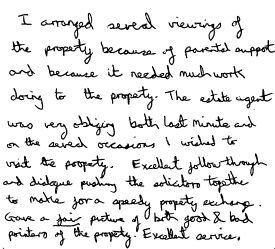 I arranged several viewings of
the property because of parental support
and because it needed much work
doing to the property. The estate agent
was very obliging both last minute and
on the several occasions I wished to
visit the property. Excellent follow through
and dialogue pushing the solicitors together
to make for a speedy property exchange.
Gave a fair picture of both good & bad
pointers of the property. Excellent service.